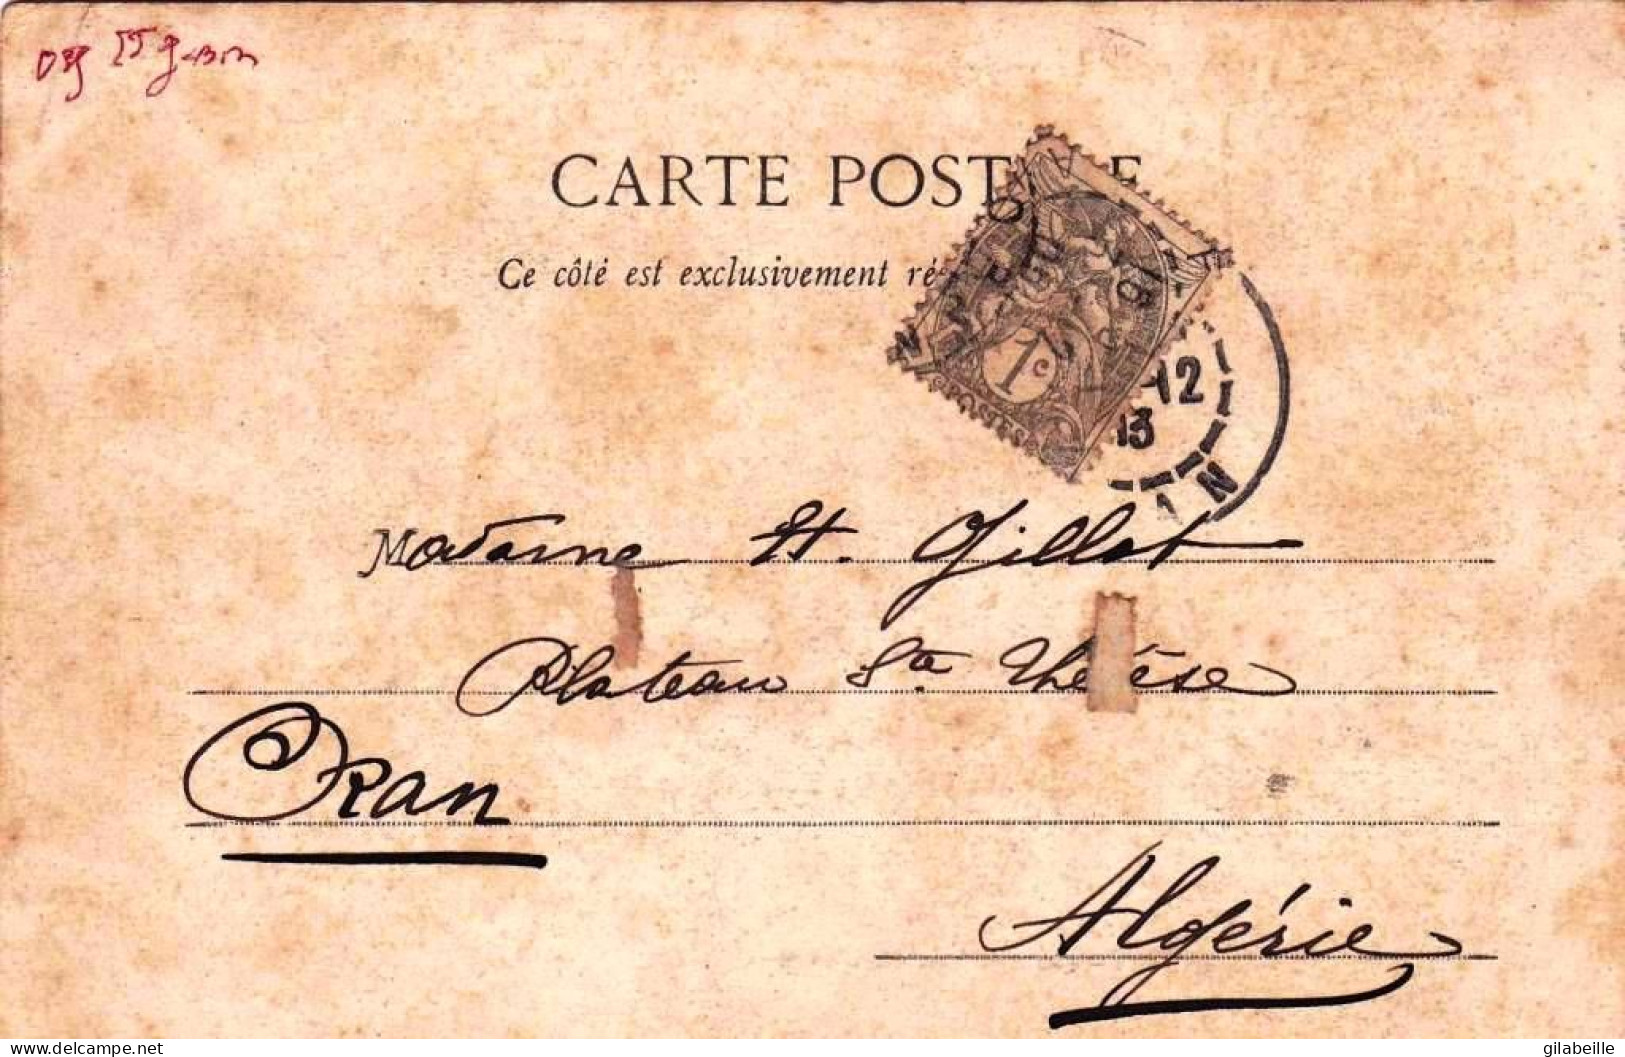 CARTE POSTALE
Ce côté est exclusivement ré
1c
POSTES
12
13
Madame H. Gillot
Plateau Ste Thérèse
Oran
Algérie
https://www.delcampe.net
gilabeille